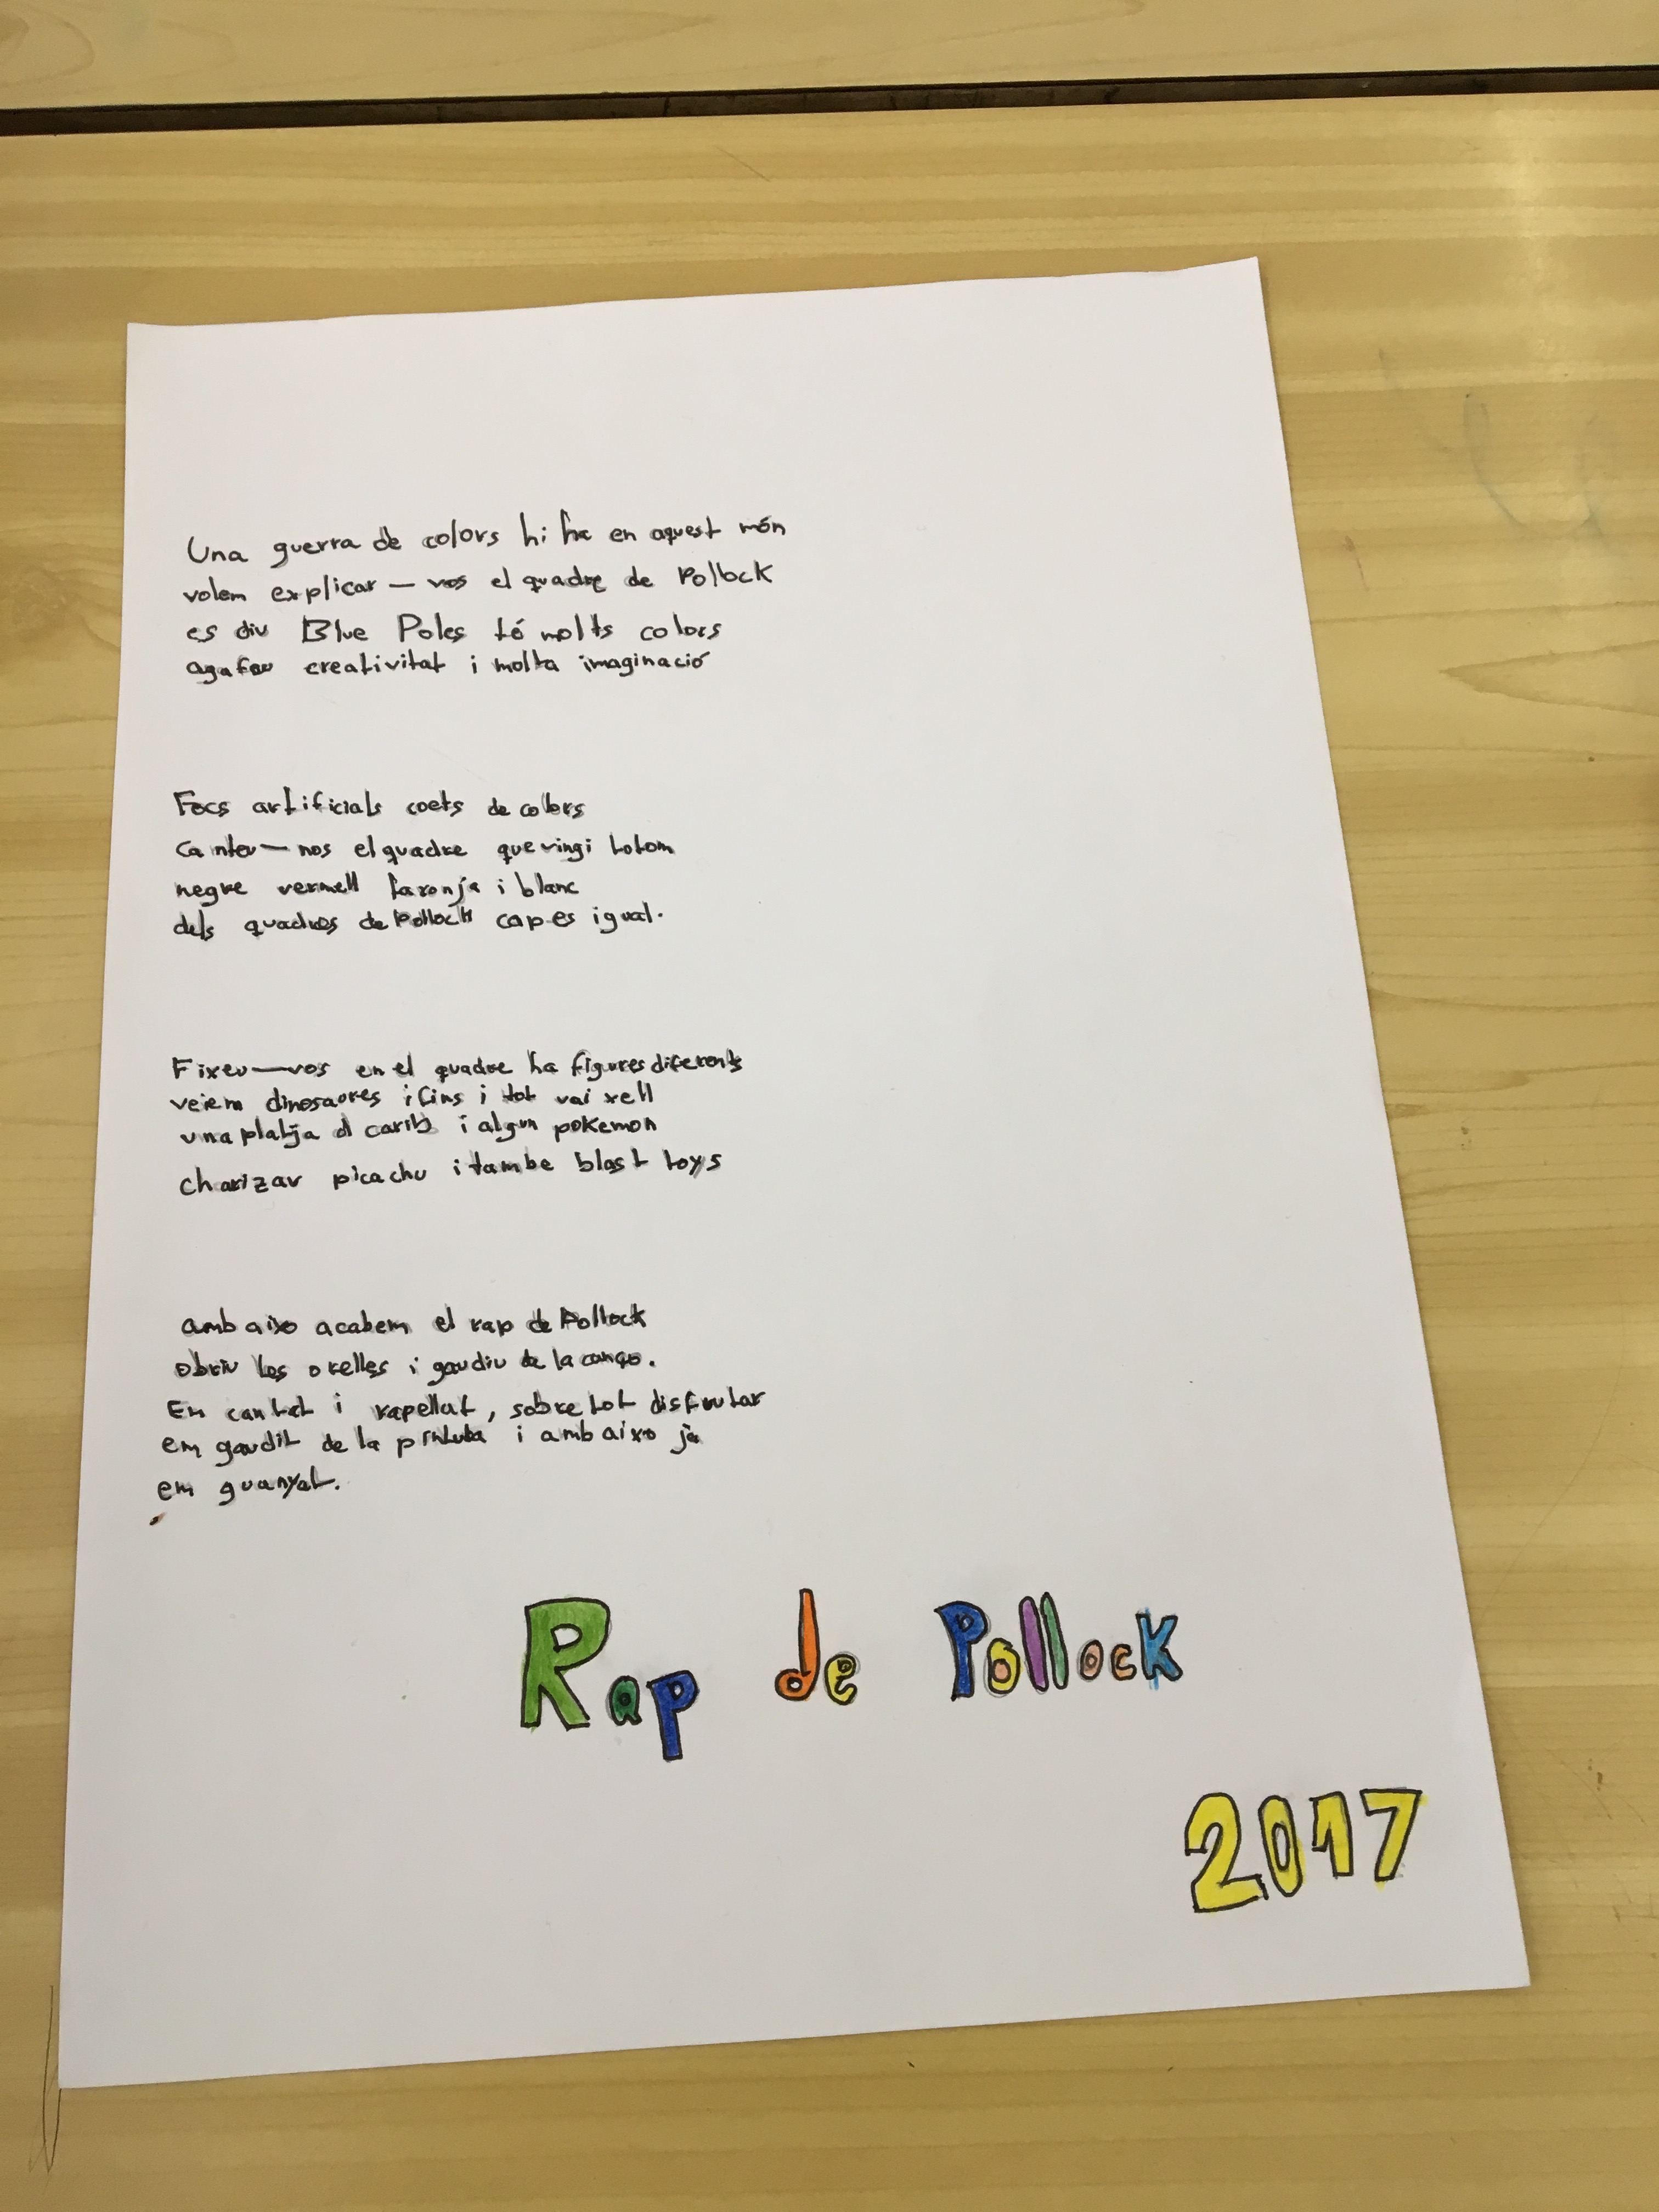 Una guerra de colors hi ha en aquest món
volem explicar-vos el quadre de Pollock
es diu Blue Poles té molts colors
agafeu creativitat i molta imaginació
Focs artificials coets de colors
Canteu-nos el quadre que vingi totom
negre vermell taronja i blanc
dels quadres de Pollock cap es igual.
Fixeu-vos en el quadre ha figures diferents
veiem dinosaures i fins i tot vaixell
una platja al carib i algun pokemon
charizar picachu i tambe blast toys
amb aixo acabem el rap de Pollock
obriu les orelles i gaudiu de la canço.
Em cantat i rapellat, sobretot disfrutar
em gaudit de la pintura i amb aixo ja
em guanyat.
Rap de Pollock
2017